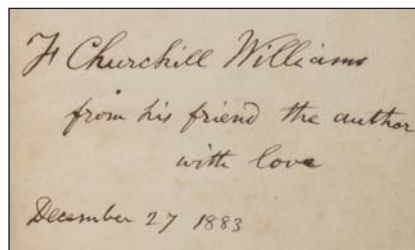 F Churchill Williams
from his friend the author
with love
December 27 1883